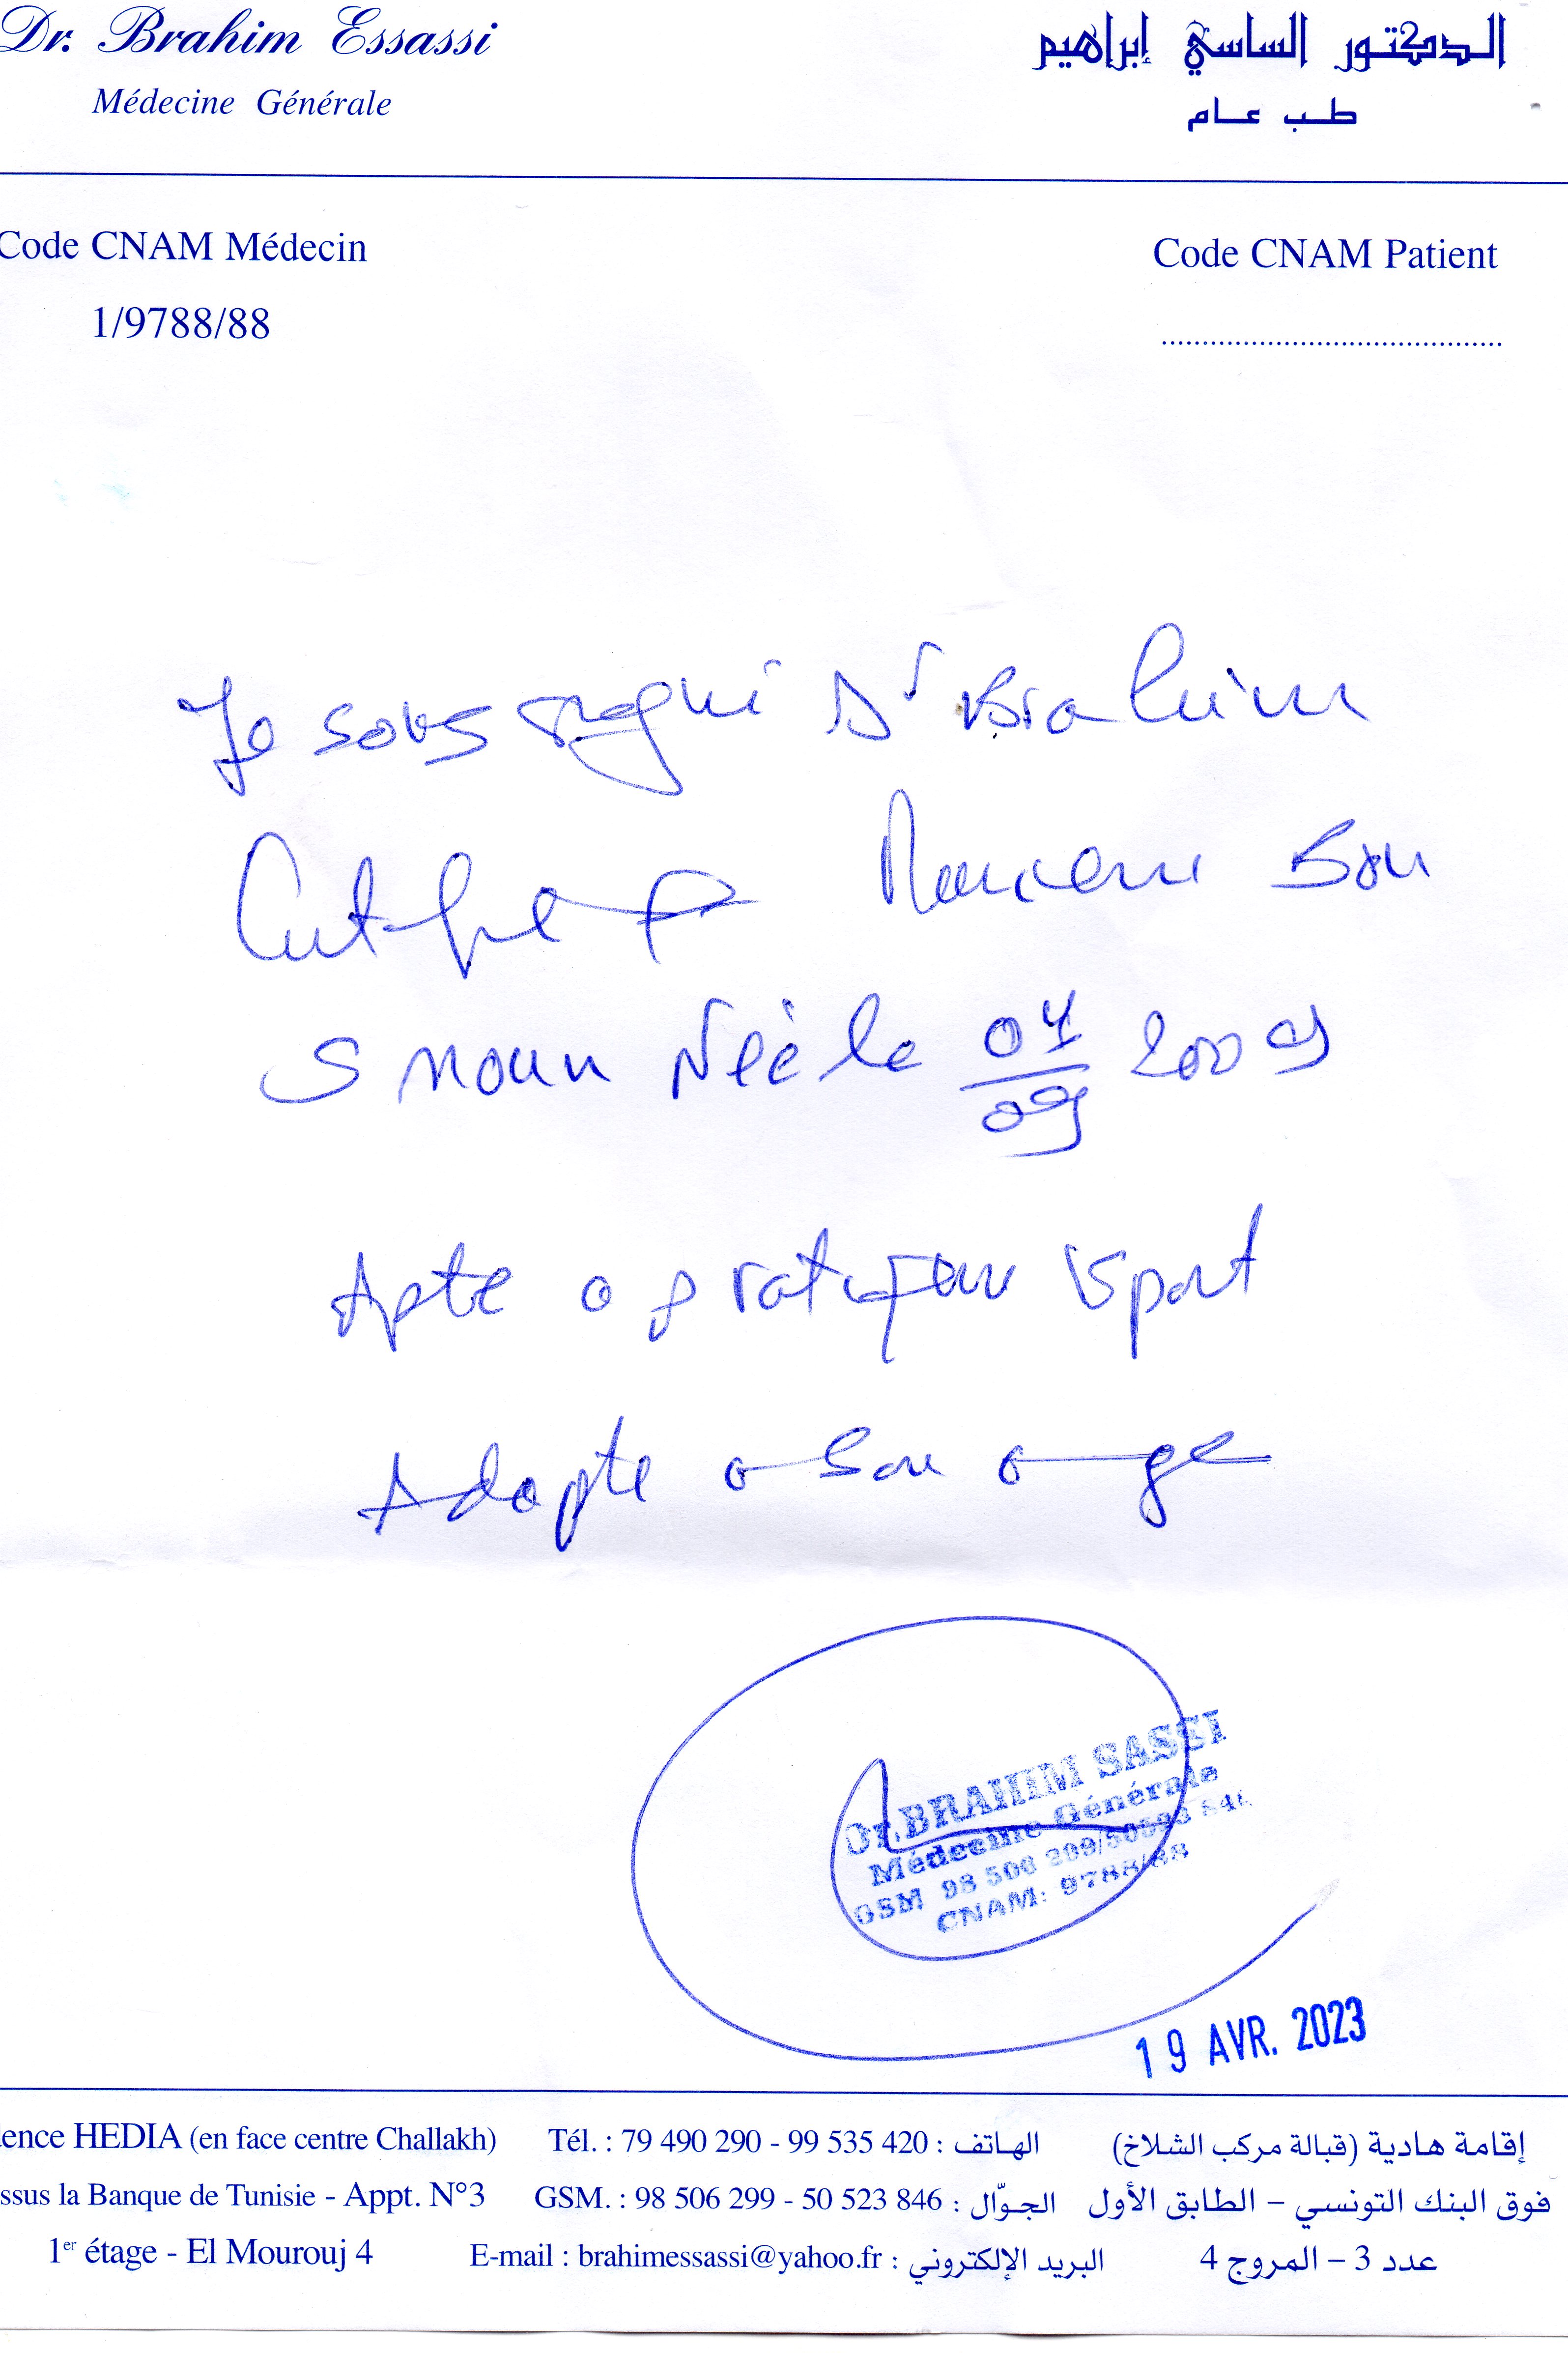 Dr. Brahim Essassi
Médecine Générale
الدكتور الساسي إبراهيم
طب عام
Code CNAM Médecin
1/9788/88
Code CNAM Patient
Je soussigné Dr Brahim
Certifie Bou
Smoun Née le 04/09 2009
Apte a pratiquer Sport
Adapte a son age
Dr.BRAHIM SASSI
Médecine Générale
GSM 98 506 299/50523 846
CNAM: 9788/88
19 AVR. 2023
ence HEDIA (en face centre Challakh)
ssus la Banque de Tunisie - Appt. N°3
1er étage - El Mourouj 4
Tél. : 79 490 290 - 99 535 420 : الهاتف
GSM. : 98 506 299 - 50 523 846 : الجوّال
E-mail : brahimessassi@yahoo.fr : البريد الإلكتروني
إقامة هادية (قبالة مركب الشلاخ)
فوق البنك التونسي – الطابق الأول
عدد 3 – المروج 4